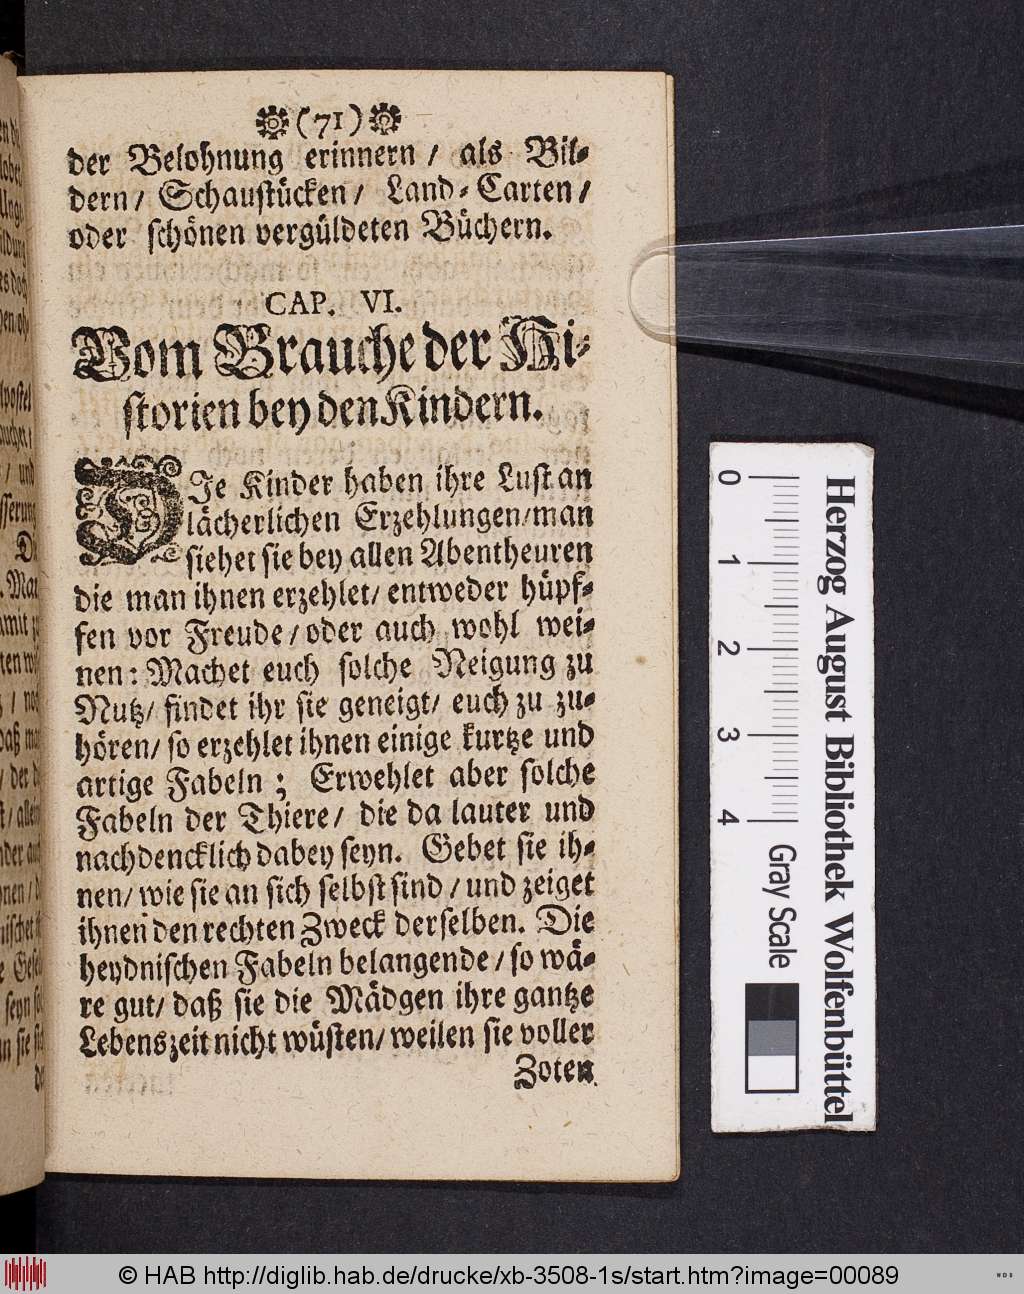 (71)
der Belohnung erinnern / als Bil⸗
dern / Schaustücken / Land⸗Carten /
oder schönen vergüldeten Büchern.
CAP. VI.
Vom Brauche der Hi⸗
storien bey den Kindern.
DIe Kinder haben ihre Lust an
lächerlichen Erzehlungen / man
siehet sie bey allen Abentheuren
die man ihnen erzehlet / entweder hüpf⸗
fen vor Freude / oder auch wohl wei⸗
nen: Machet euch solche Neigung zu
Nutz / findet ihr sie geneigt / euch zu zu⸗
hören / so erzehlet ihnen einige kurtze und
artige Fabeln; Erwehlet aber solche
Fabeln der Thiere / die da lauter und
nachdencklich dabey seyn. Gebet sie ih⸗
nen / wie sie an sich selbst sind / und zeiget
ihnen den rechten Zweck derselben. Die
heydnischen Fabeln belangende / so wä⸗
re gut / daß sie die Mädgen ihre gantze
Lebenszeit nicht wüsten / weilen sie voller
Zoten
0 1 2 3 4
Gray Scale
Herzog August Bibliothek Wolfenbüttel
© HAB http://diglib.hab.de/drucke/xb-3508-1s/start.htm?image=00089